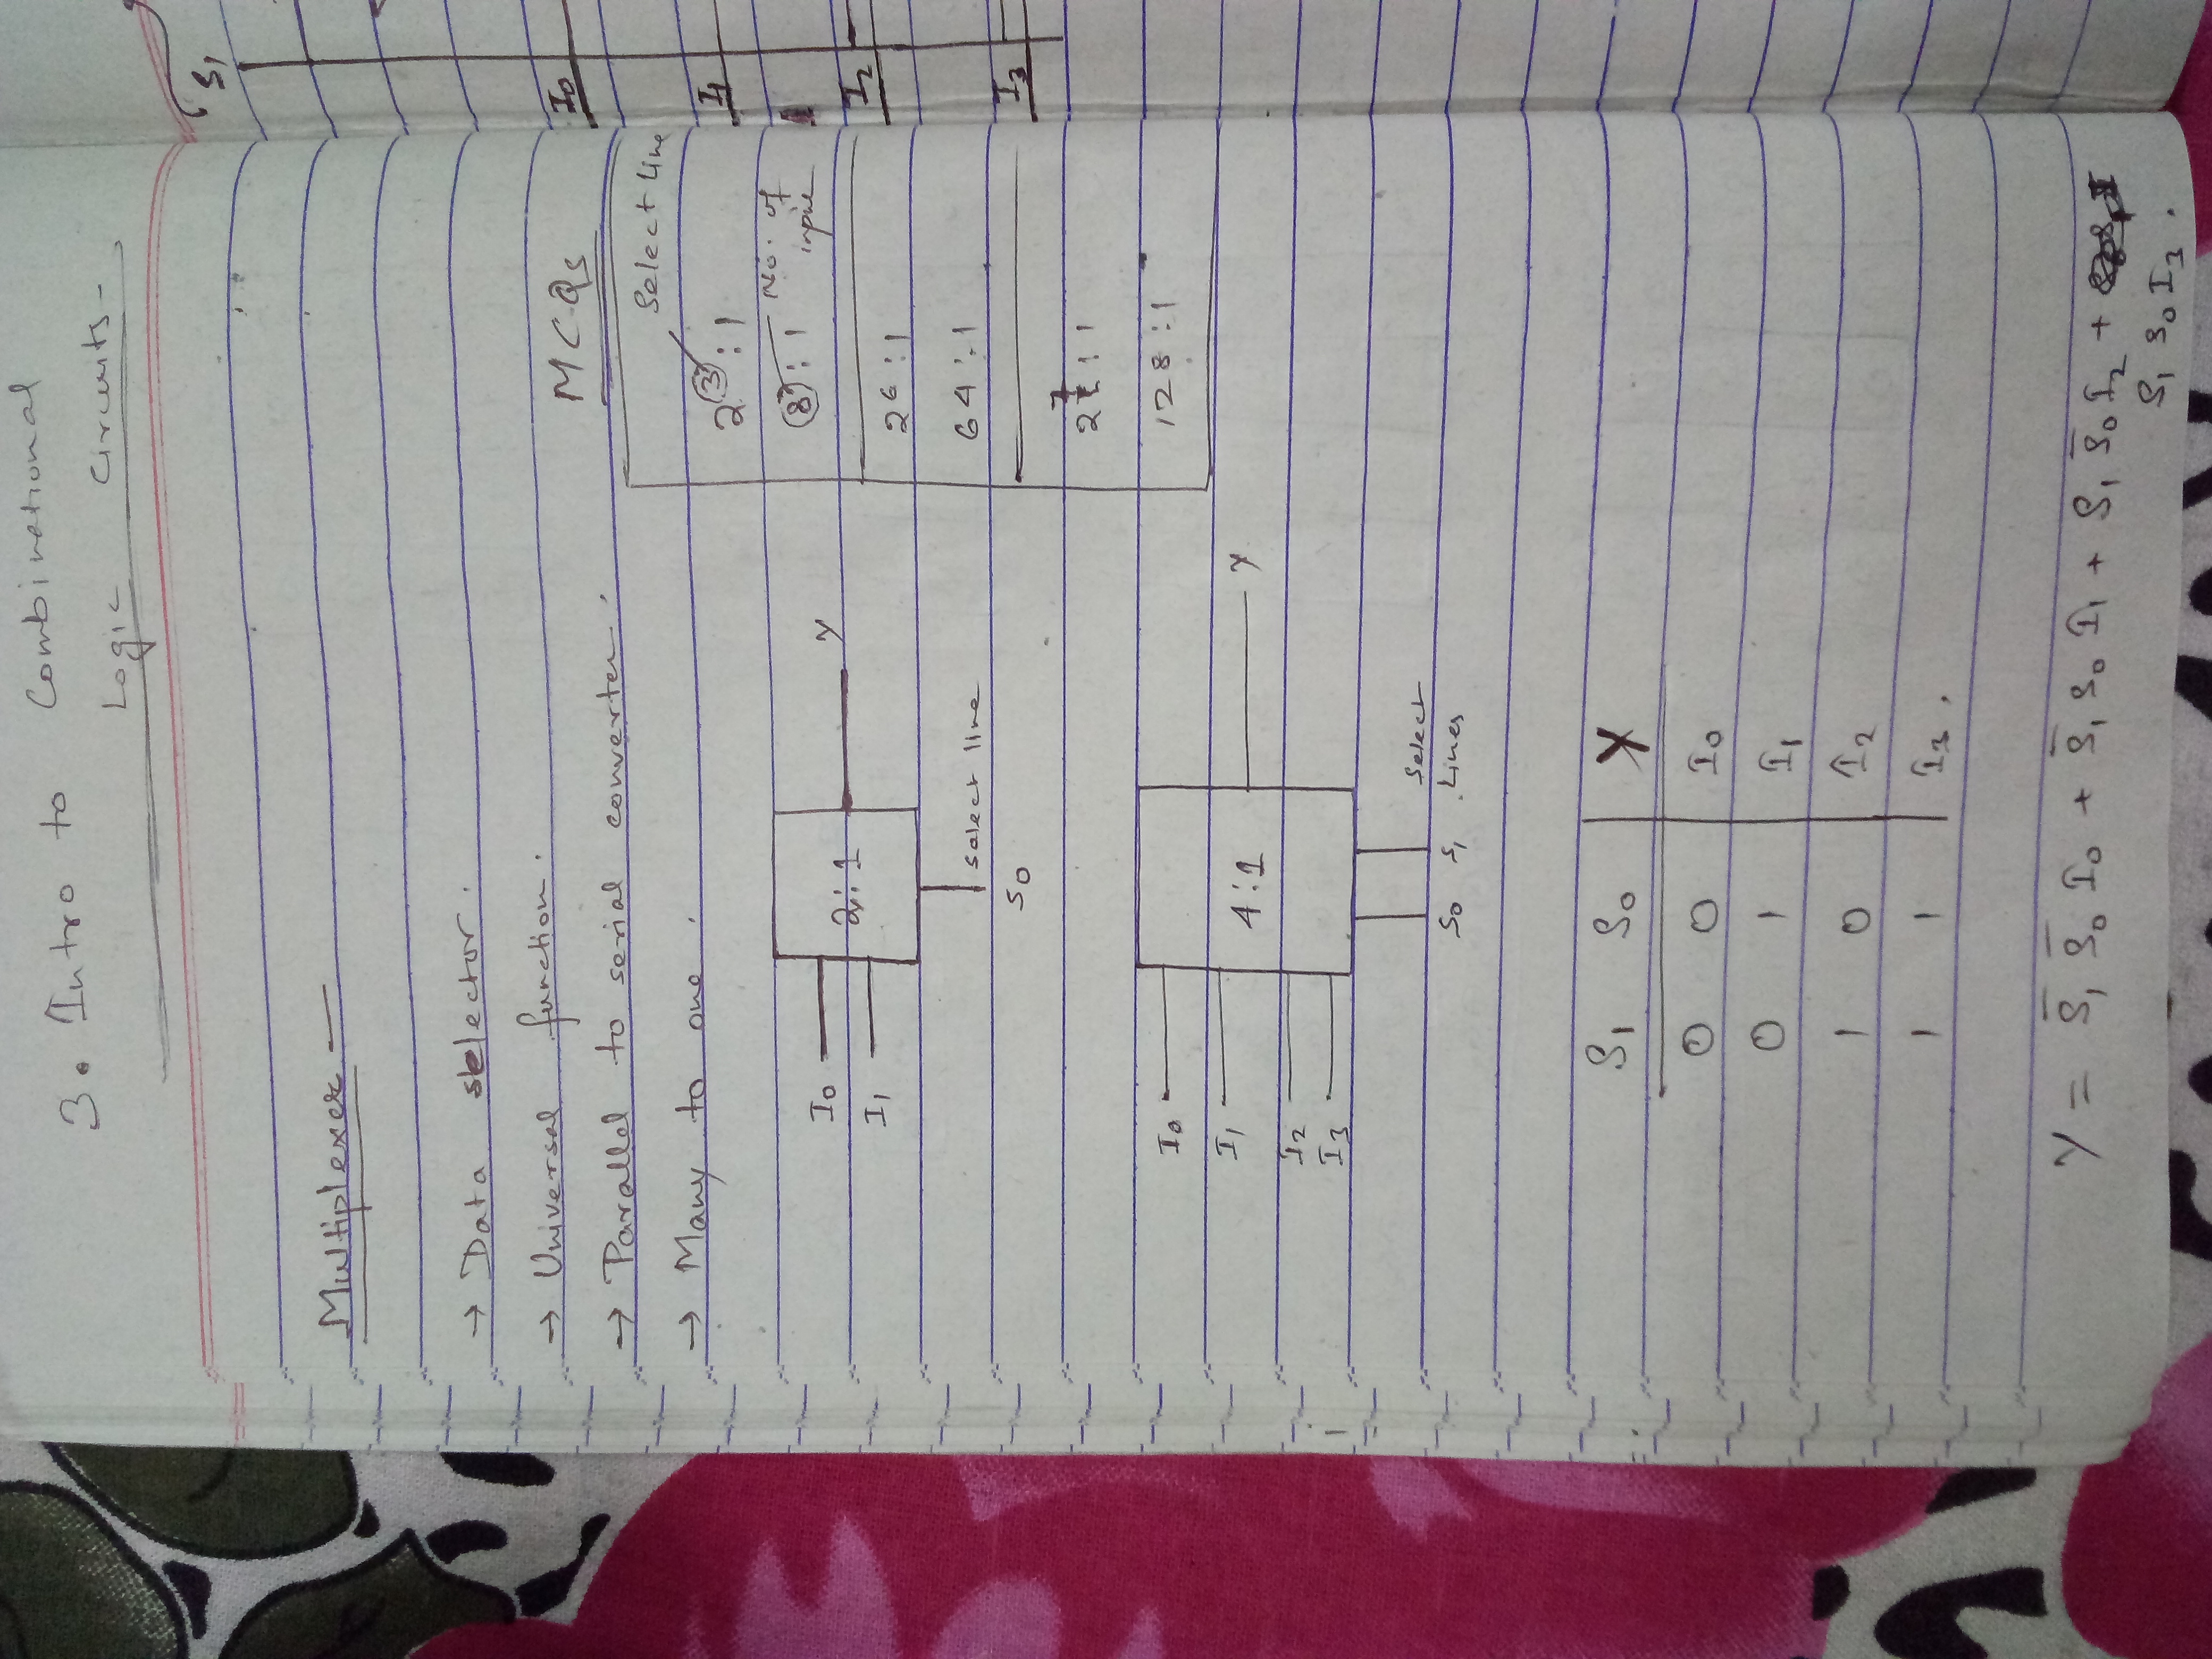 3. Intro to Combinational
Logic Circuits -
Multiplexer —
→ Data selector.
→ Universal function.
→ Parallel to serial converter.
→ Many to one.
I0
I1
2:1
Y
select line
S0
MCQs
Select Line
2³ : 1
8 : 1 No. of
2⁶ : 1
64 : 1
2⁷ : 1
128 : 1
I0
I1
I2
I3
4:1
Y
S0 S1 Select
Lines
S1 S0 Y
0 0 I0
0 1 I1
1 0 I2
1 1 I3.
Y = S̅1 S̅0 I0 + S̅1 S0 I1 + S1 S̅0 I2 +
S1 S0 I3.
S1
I0
I1
I2
I3